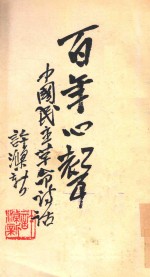 百年心聲
中國民主革命詩話
許滌新